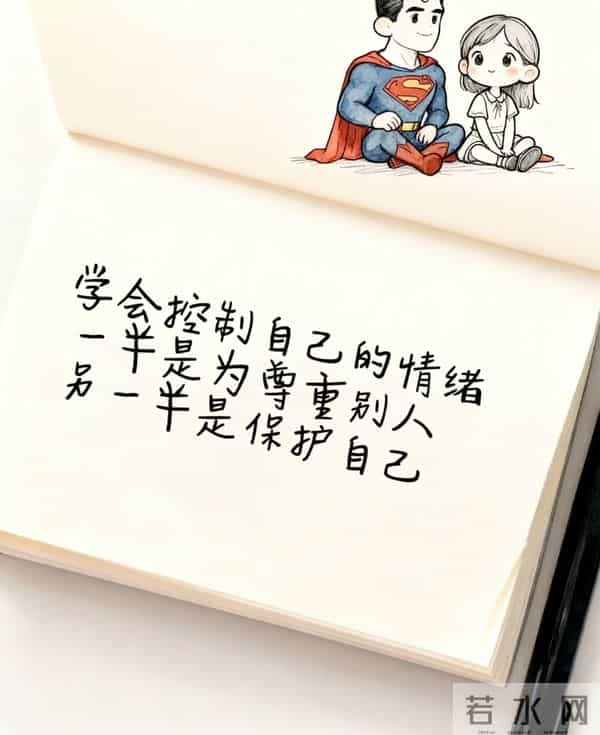 学会控制自己的情绪
一半是为尊重别人
另一半是保护自己
若水网